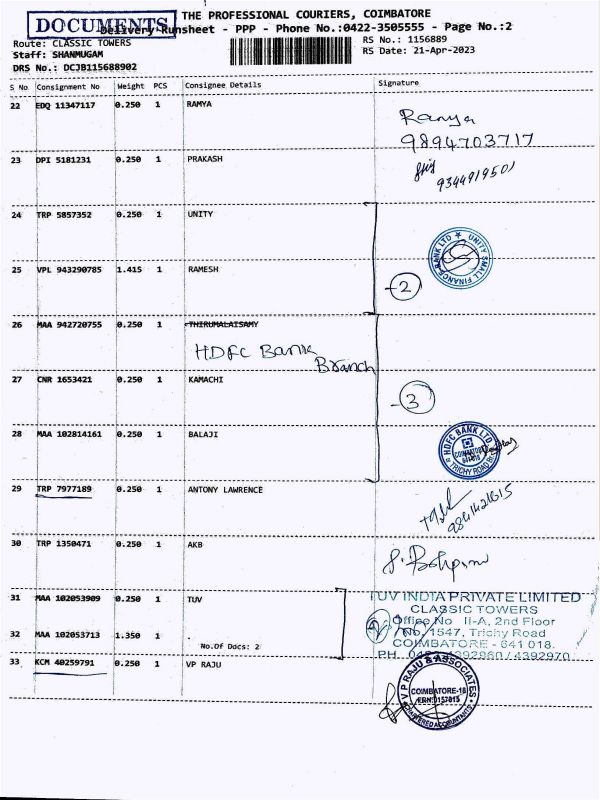 DOCUMENTS
THE PROFESSIONAL COURIERS, COIMBATORE
Delivery Runsheet - PPP - Phone No.:0422-3505555 - Page No.:2
Route: CLASSIC TOWERS
RS No.: 1156889
Staff: SHANMUGAM
RS Date: 21-Apr-2023
DRS No.: DCJB115688902
S No Consignment No Weight PCS Consignee Details Signature
22 EDQ 11347117 0.250 1 RAMYA
Ramya
9894703717
23 DPI 5181231 0.250 1 PRAKASH
9344919501
24 TRP 5857352 0.250 1 UNITY
UNITY SMALL FINANCE BANK LTD
25 VPL 943290785 1.415 1 RAMESH
-2
26 MAA 942720755 0.250 1 THIRUMALAISAMY
HDFC Bank
Branch
27 CNR 1653421 0.250 1 KAMACHI
-3
28 MAA 102814161 0.250 1 BALAJI
HDFC BANK LTD
COIMBATORE
641018
TRICHY ROAD
29 TRP 7977189 0.250 1 ANTONY LAWRENCE
30 TRP 1350471 0.250 1 AKB
31 MAA 102053909 0.250 1 TUV
TUV INDIA PRIVATE LIMITED
CLASSIC TOWERS
Office No II-A, 2nd Floor
No. 1547, Trichy Road
COIMBATORE - 641 018.
PH. 4392960 / 4392970
32 MAA 102053713 1.350 1 .
No.Of Docs: 2
33 KCM 40259791 0.250 1 VP RAJU
V P RAJU & ASSOCIATES
COIMBATORE-18
CHARTERED ACCOUNTANTS